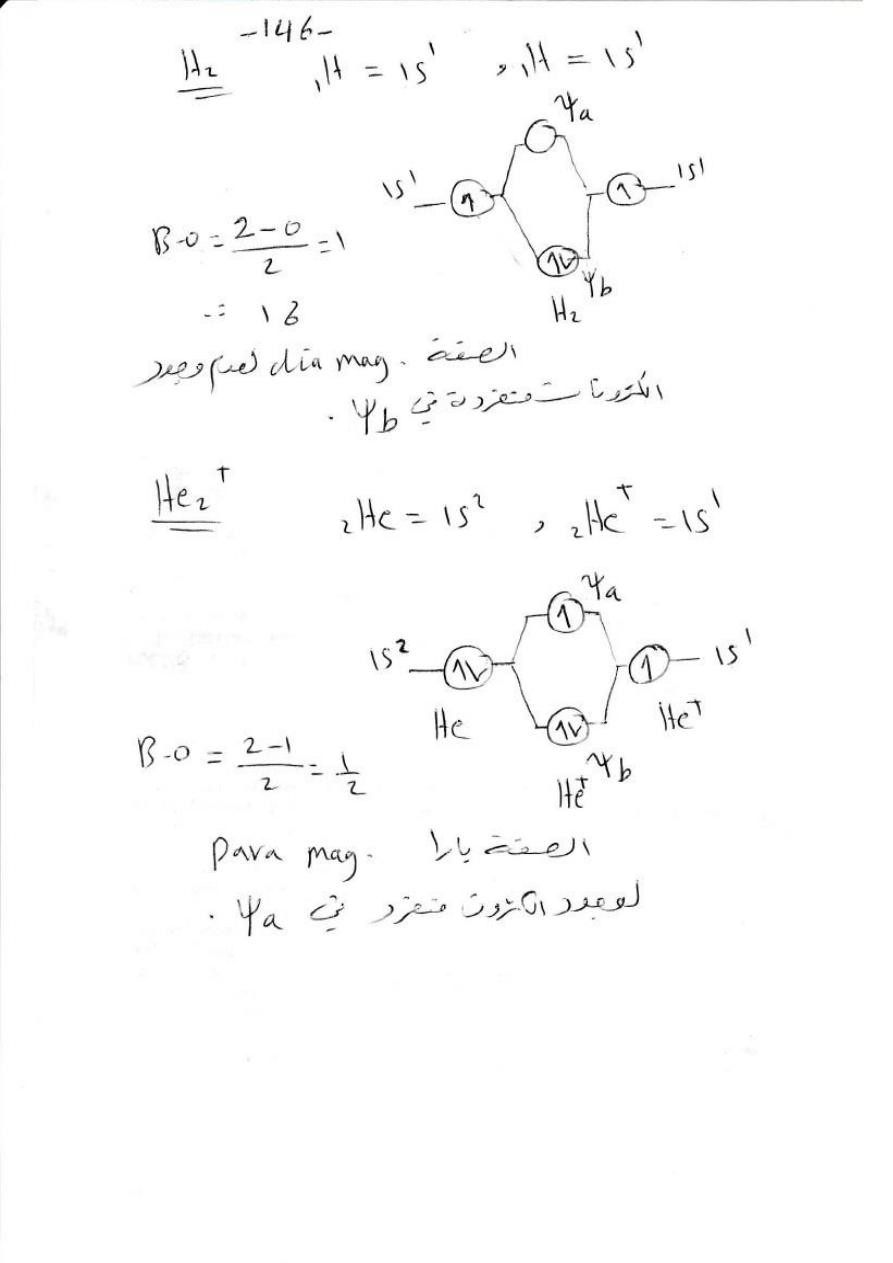 -146-
H₂ ₁H = 1S¹ , ₁H = 1S¹
Ψa
1S¹ ↑ ↑ 1S¹
B-O = (2-0)/2 = 1
↑↓ Ψb
H₂
الصفة dia mag. لعدم وجود
الكترونات منفردة في Ψb .
He₂⁺ ₂He = 1S² , ₂He⁺ = 1S¹
Ψa
↑
1S² ↑↓ ↑ 1S¹
He He⁺
↑↓ Ψb
B-O = (2-1)/2 = 1/2
He⁺
الصفة بارا para mag.
لوجود الكترون منفرد في Ψa .